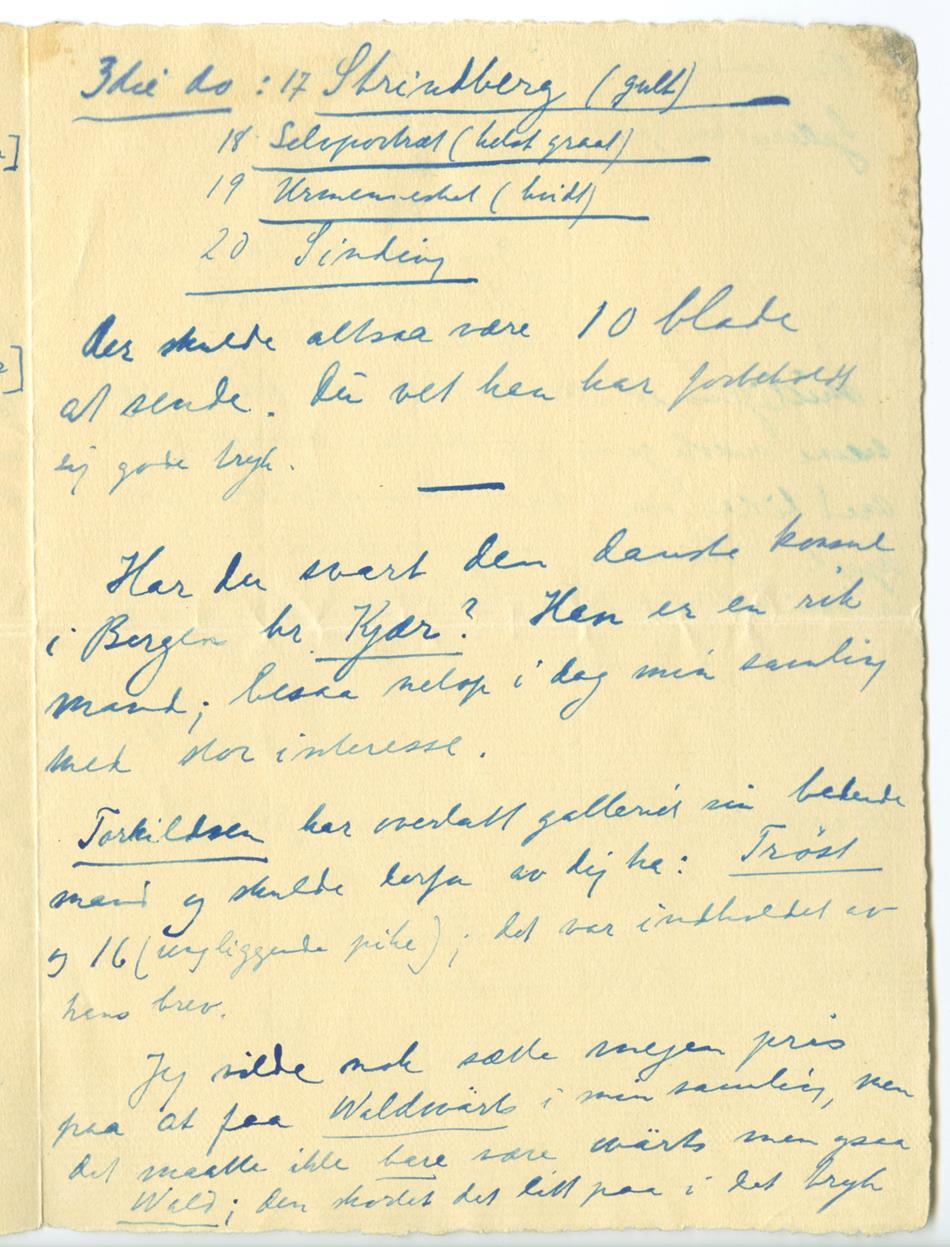 3die do : 17 Strindberg (gult)
18 Selvportræt (helst graat)
19 Urmennesket (hvidt)
20 Sinding
Der skulde altsaa være 10 blade
at sende. Du vet han har forbeholdt
sig gode tryk.
Har du svart den danske konsul
i Bergen hr. Kjær? Han er en rik
mand; besaa netop i dag min samling
med stor interesse.
Torkildsen har overlatt galleriet sin badende
mand og skulde derfor av dig ha: Tröst
og 16 (ung liggende pike); det var indholdet av
hans brev.
Jeg vilde nok sætte megen pris
paa at faa Waldwärts i min samling, men
det maatte ikke bare være wärts men ogsaa
Wald; den skortet det litt paa i det tryk